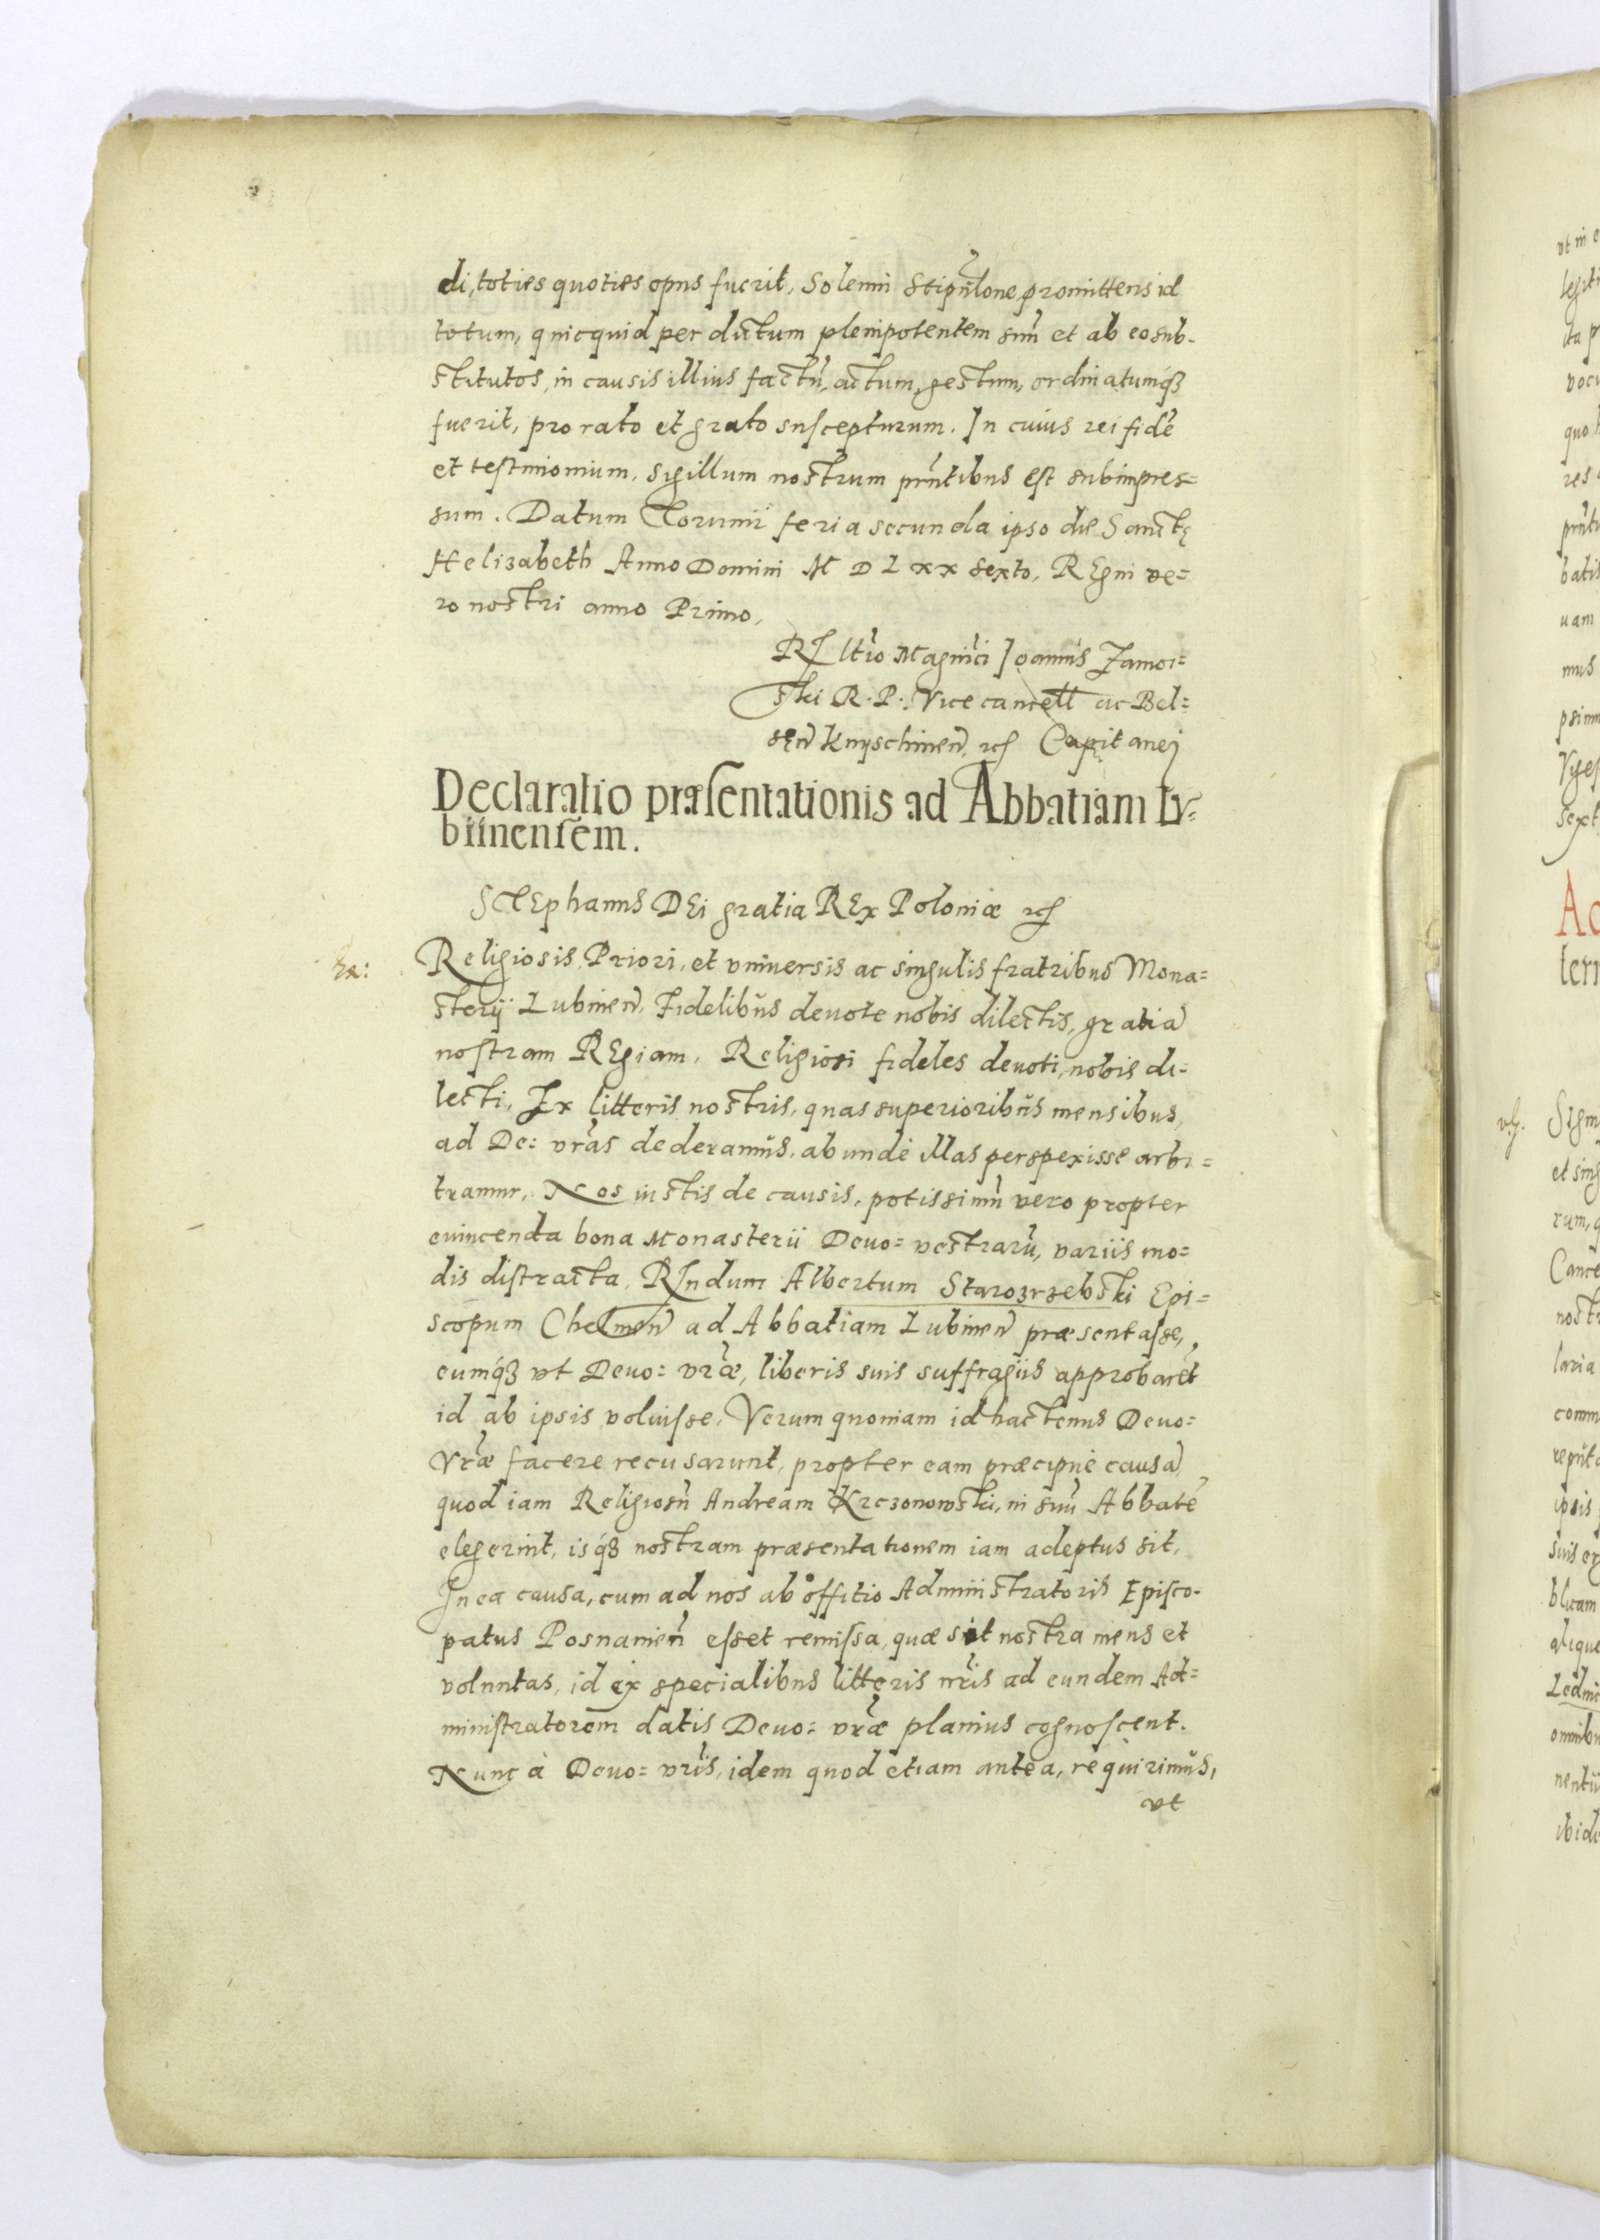 di, toties quoties opus fuerit, Solenni stipul̃one promittens id
totum, quicquid per dictum plenipotentem suũ et ab eo sub-
stitutos, in causis illius factũ, actum, gestum, ordinatumq́ȝ
fuerit, pro rato et grato suscepturum. In cuius rei fidẽ
et testimonium, sigillum nostrum prñtibus est subimpres=
sum. Datum Torunii feria secunda ipso die Sanctę
Helizabeth Anno Domini M D L xx sexto, Regni ve=
ro nostri anno Primo.
Rl̃tio Magnĩci Joannis Zamoi=
ski R. P. Vicecancell ac Bel=
zen̄ Knyschinen̄, etc Capitanej
Declaratio præsentationis ad Abbatiam Lv=
biinensem.
STEphanus DEi gratia REx Poloniæ etc
Ex:
Religiosis, Priori, et vniuersis ac singulis fratribus Mona=
sterij Lubinen̄. Fidelibus deuote nobis dilectis, gratiã
nostram REgiam. Religiosi fideles deuoti, nobis di-
lecti, Ex litteris nostris, quas superioribus mensibus,
ad De: vrãs dederamus, abunde illas perspexisse arbi=
tramur, Nos iustis de causis, potissimũ vero propter
euincenda bona Monasterii Deuo= vestrarũ, variis mo=
dis distracta, Rñdum Albertum Starozrzebski Epi=
scopum Chelmen̄ ad Abbatiam Lubinen̄ præsentasse,
eumq́ȝ vt Deuo= vrã̃æ, liberis suis suffragiis approbarẽt
id ab ipsis voluisse. Verum quoniam id hactenus Deuo=
Vrãæ facere recusarunt, propter eam præcipue causã
quod iam Religiosũ Andream Krzczonowski, in suũ Abbatẽ
elegerint, isq́ȝ nostram præsentationem iam adeptus sit,
In ea causa, cum ad nos ab offitio Administratoris Episco-
patus Posnanien̄ esset remissa, quæ sit nostra mens et
voluntas, id ex specialibus litteris nr̃is ad eundem Ad=
ministratorem datis Deuo= vrãæ planius cognoscent.
Nunc à Deuo= vrĩs, idem quod etiam antea, requirimus,
vt